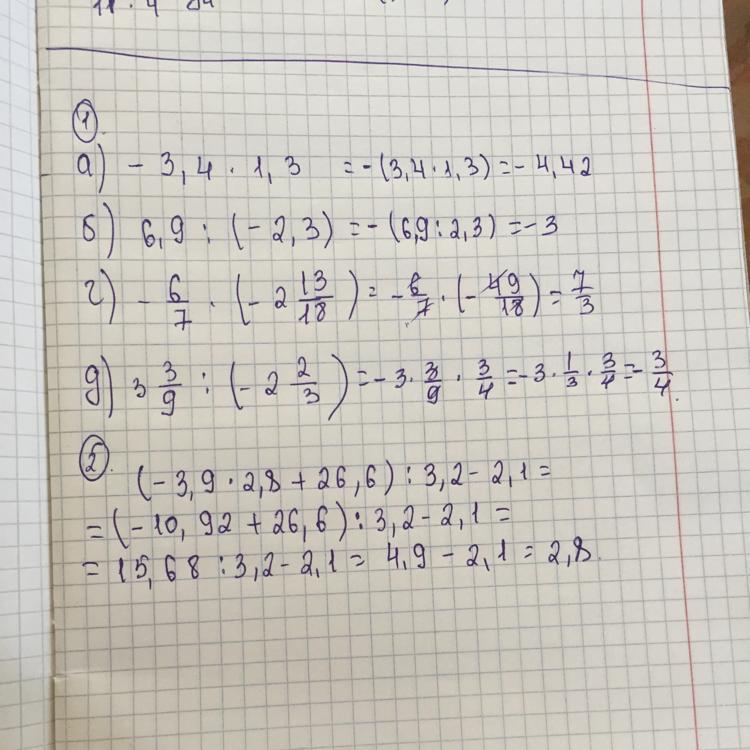 1.
а) - 3,4 · 1,3 = -(3,4·1,3) = - 4,42
б) 6,9 : (- 2,3) = - (6,9:2,3) = - 3
г) - 6/7 · (- 2 13/18) = - 6/7 · (- 49/18) = 7/3
д) 3 3/9 : (- 2 2/3) = - 3 · 3/9 · 3/4 = - 3 · 1/3 · 3/4 = - 3/4.
2.
(- 3,9 · 2,8 + 26,6) : 3,2 - 2,1 =
= (- 10,92 + 26,6) : 3,2 - 2,1 =
= 15,68 : 3,2 - 2,1 = 4,9 - 2,1 = 2,8.